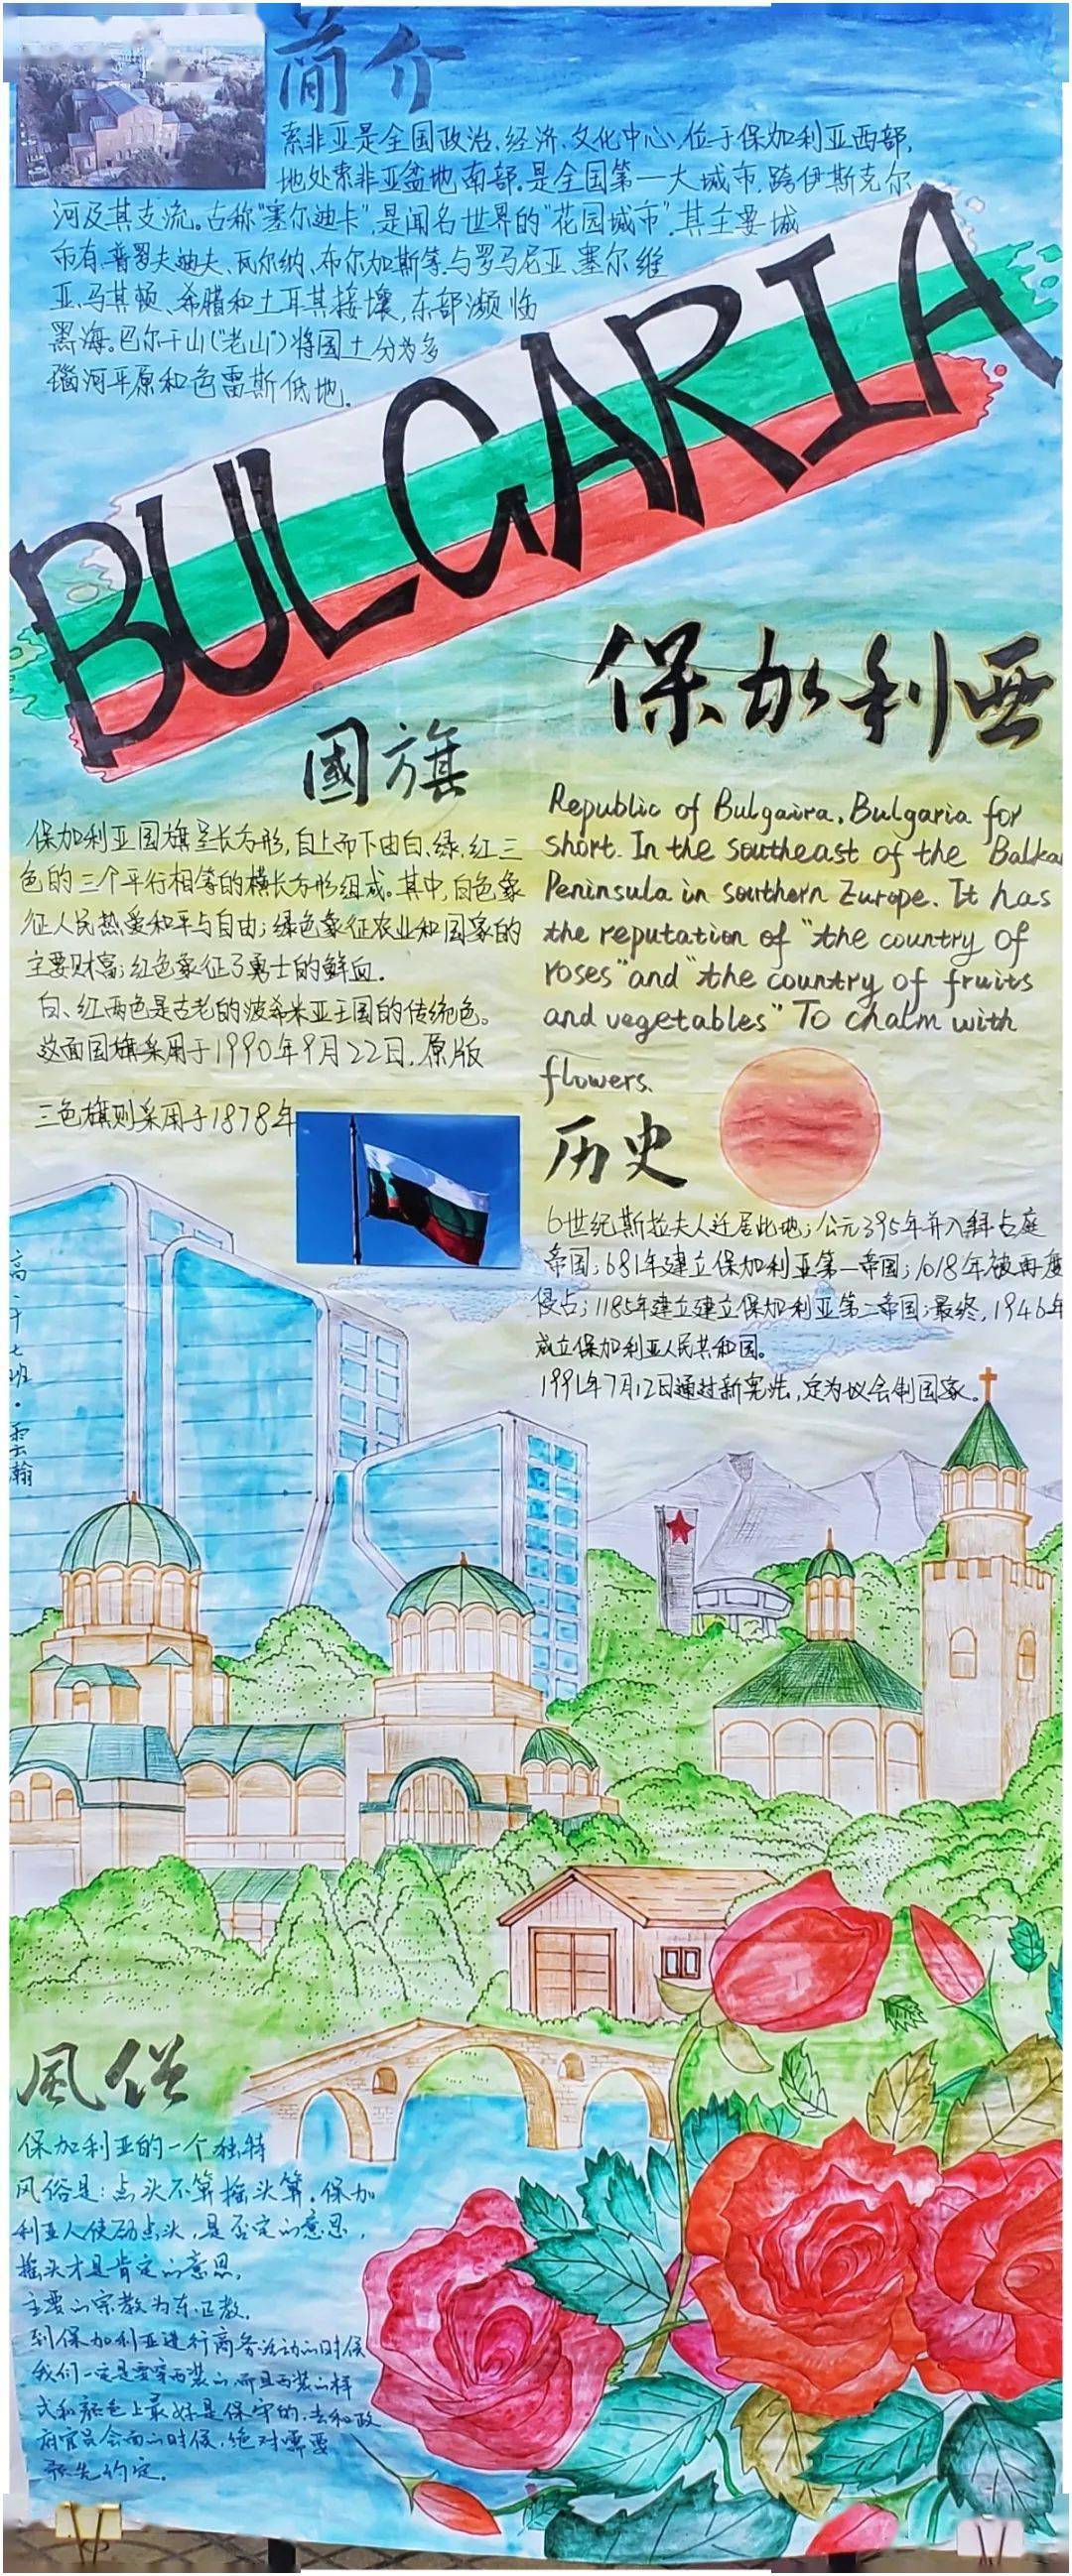 简介
索非亚是全国政治、经济、文化中心,位于保加利亚西部,
地处索非亚盆地南部.是全国第一大城市,跨伊斯克尔
河及其支流。古称“塞尔迪卡”,是闻名世界的“花园城市”.其主要城
市有、普罗夫迪夫、瓦尔纳、布尔加斯等.与罗马尼亚、塞尔维
亚、马其顿、希腊和土耳其接壤,东部濒临
黑海。巴尔干山(“老山”)将国土分为多
瑙河平原和色雷斯低地。
BULGARIA
保加利亚
國旗
保加利亚国旗呈长方形,自上而下由白、绿、红三
色的三个平行相等的横长方形组成。其中,白色象
征人民热爱和平与自由;绿色象征农业和国家的
主要财富;红色象征了勇士的鲜血.
白、红两色是古老的波希米亚王国的传统色。
这面国旗采用于1990年9月22日,原版
三色旗则采用于1878年
Republic of Bulgaira, Bulgaria for
short. In the southeast of the Balka
Peninsula in southern Europe. It has
the reputation of "the country of
roses" and "the country of fruits
and vegetables" To chalm with
flowers.
历史
6世纪斯拉夫人迁居此地;公元395年并入拜占庭
帝国;681年建立保加利亚第一帝国;1018年被再度
侵占;1185年建立建立保加利亚第二帝国;最终,1946年
成立保加利亚人民共和国。
1991年7月12日通过新宪法,定为议会制国家。
高二十七班·雲瀚
風俗
保加利亚的一个独特
风俗是:点头不算摇头算.保加
利亚人使劲点头,是否定的意思,
摇头才是肯定的意思.
主要的宗教为东正教.
到保加利亚进行商务活动的时候
我们一定是要穿西装的,而且西装的样
式和颜色上最好是保守的.去和政
府官员会面的时候,绝对需要
预先约定.